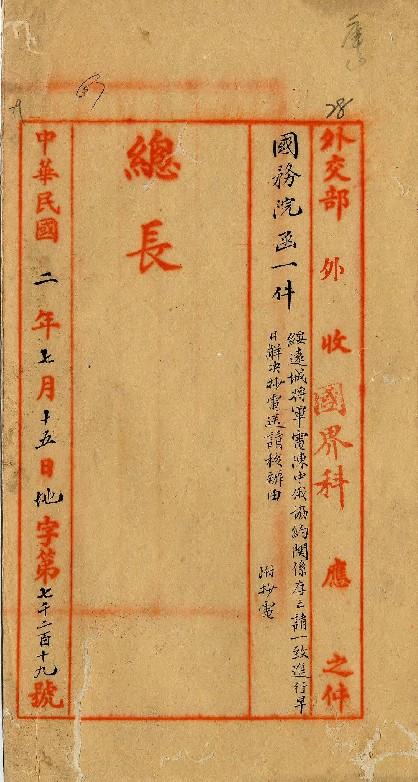 28
外交部外收國界科應之件
國務院函一件
綏遠城將軍電陳中俄協約関係存亡請一致進行早
日解决抄電送請核辦由
附抄電
總長
中華民國二年七月十五日地字第七千二百十九號